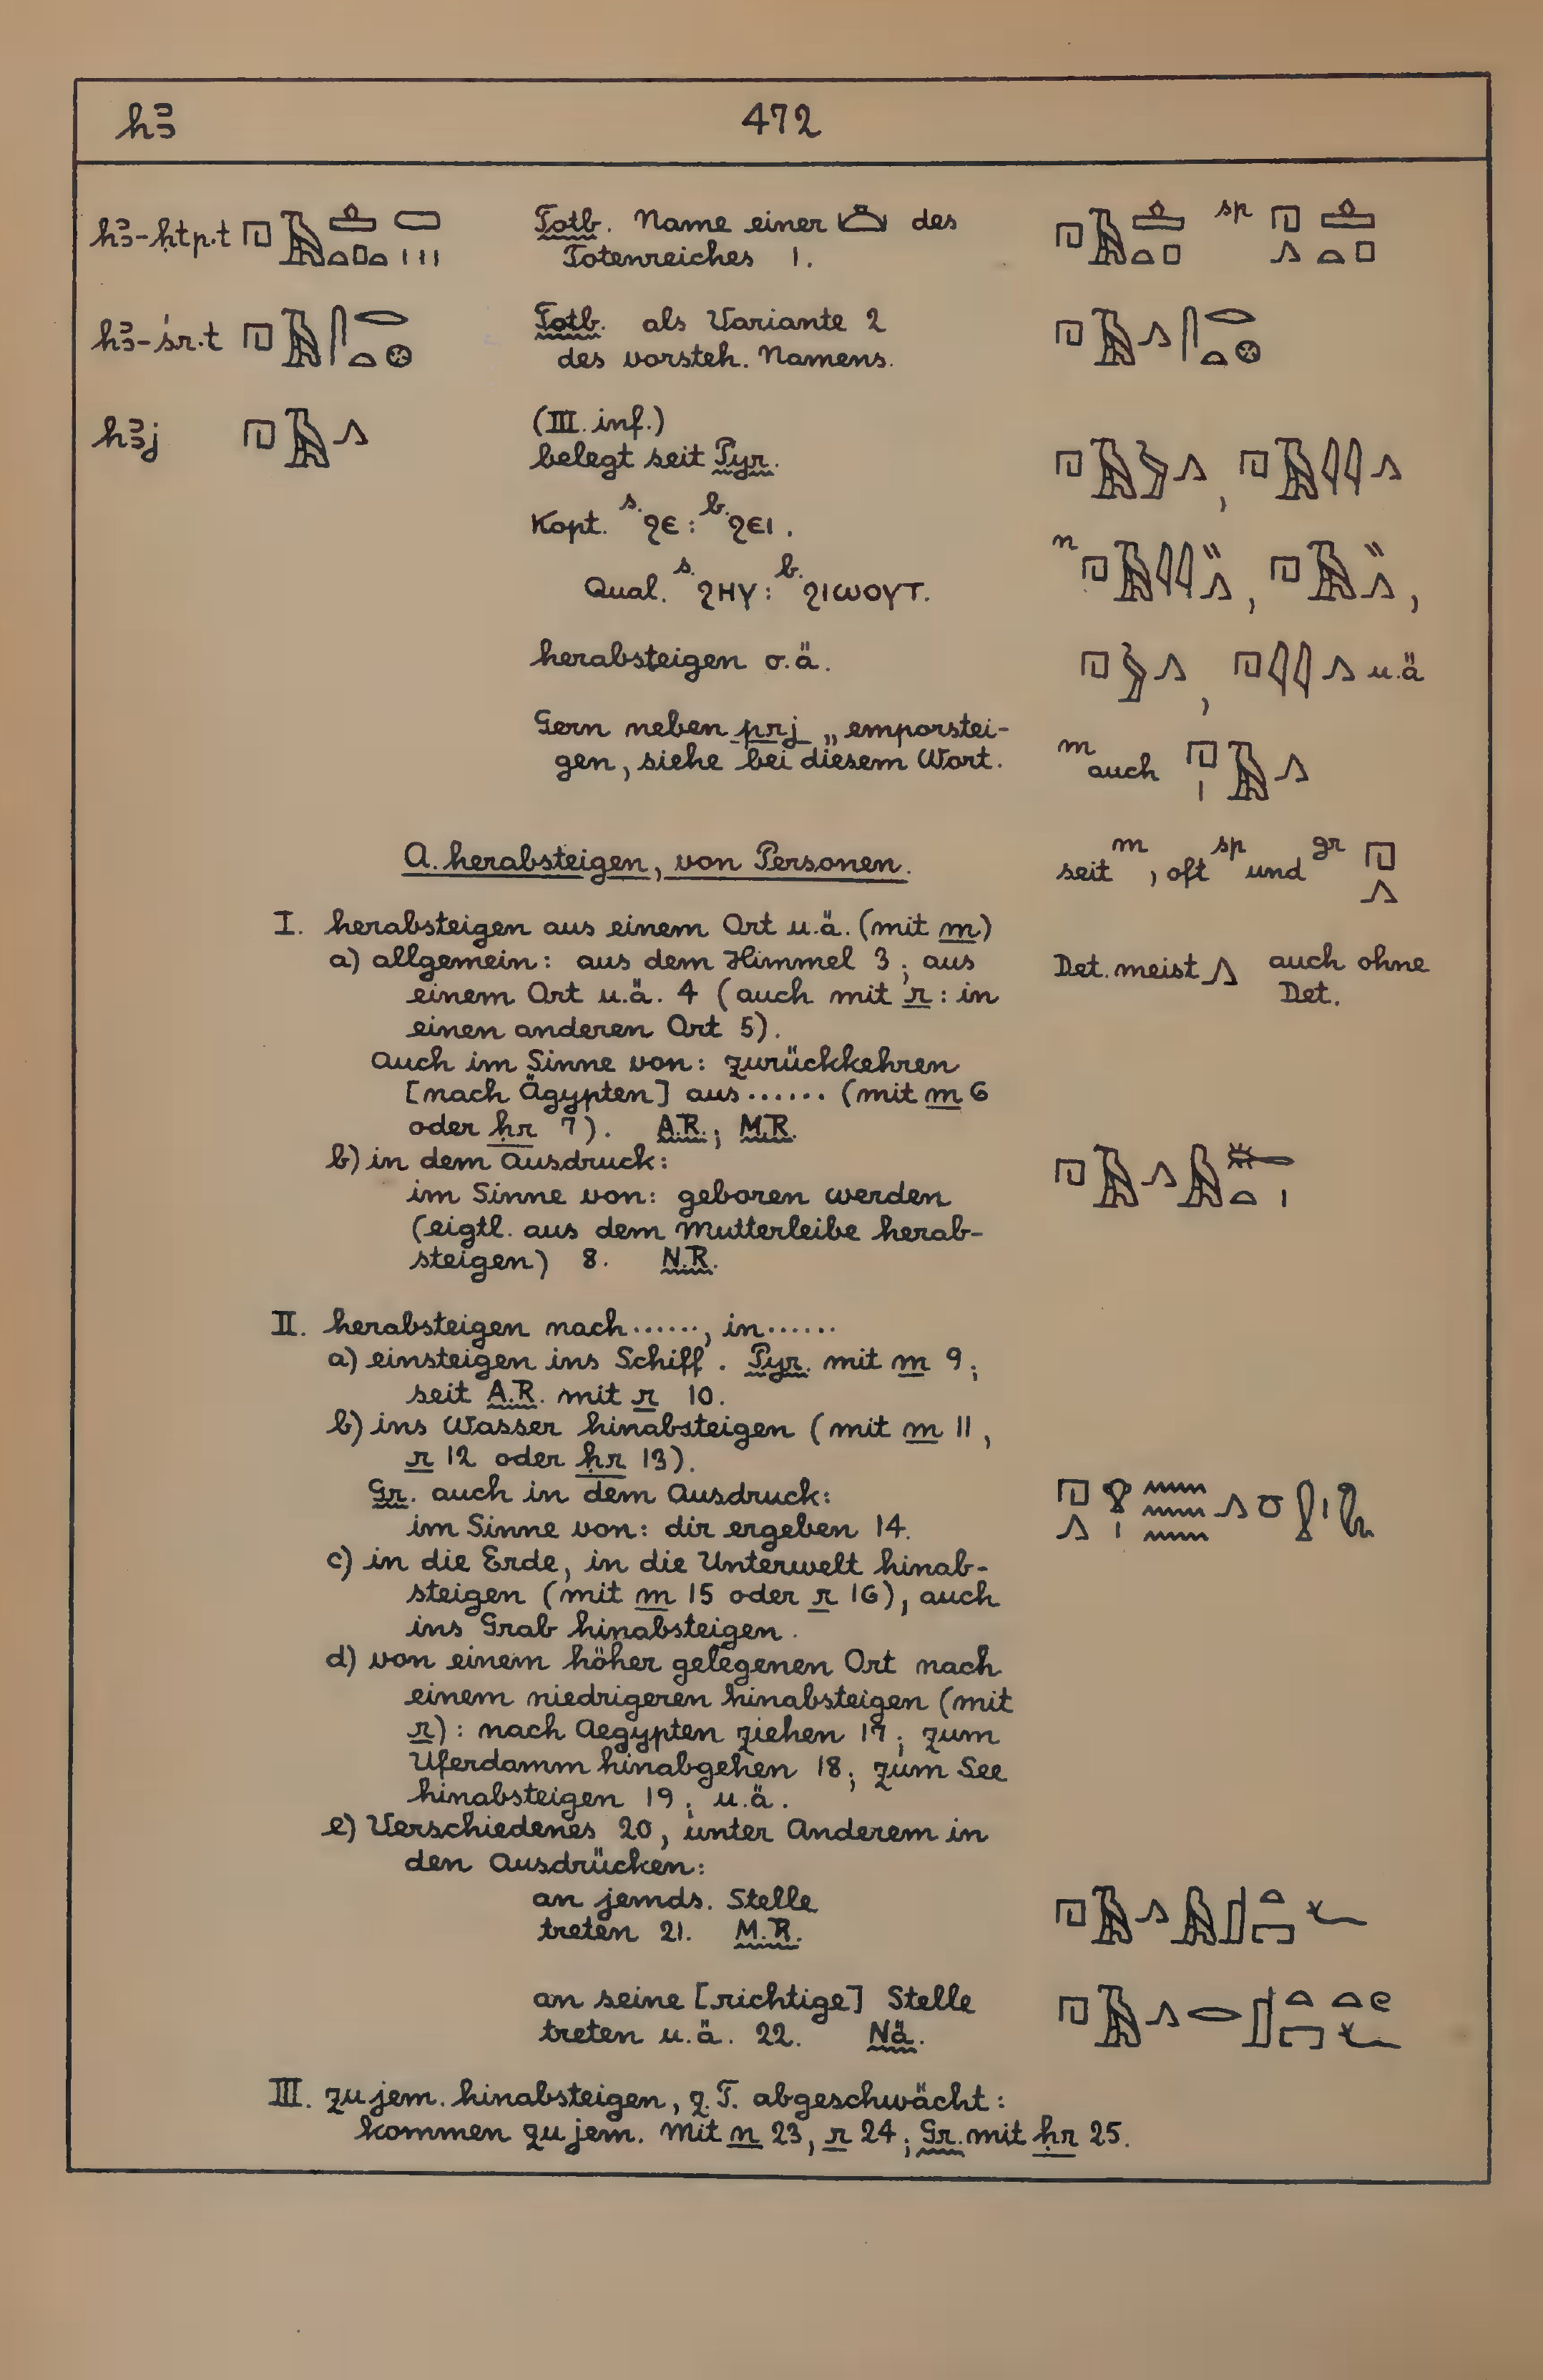 hꜣ 472
hꜣ-ḥtp.t Totb. Name einer des
Totenreiches 1. sp
hꜣ-śr.t Totb. als Variante 2
des vorsteh. Namens.
hꜣj (III. inf.)
belegt seit Pyr.
Kopt. s. ϩⲉ : b. ϩⲉⲓ.
Qual. s. ϩⲏⲩ : b. ϩⲓⲱⲟⲩⲧ.
n
herabsteigen o.ä.
u.ä
Gern neben prj „emporstei-
gen, siehe bei diesem Wort.
m auch
A. herabsteigen, von Personen.
seit m, oft sp und gr
I. herabsteigen aus einem Ort u.ä. (mit m)
a) allgemein: aus dem Himmel 3; aus
einem Ort u.ä. 4 (auch mit r: in
einen anderen Ort 5).
Det. meist auch ohne
Det.
Auch im Sinne von: zurückkehren
[nach Ägypten] aus ...... (mit m 6
oder ḥr 7). A.R.; M.R.
b) in dem Ausdruck:
im Sinne von: geboren werden
(eigtl. aus dem Mutterleibe herab-
steigen) 8. N.R.
II. herabsteigen nach ......, in ......
a) einsteigen ins Schiff. Pyr. mit m 9;
seit A.R. mit r 10.
b) ins Wasser hinabsteigen (mit m 11,
r 12 oder ḥr 13).
Gr. auch in dem Ausdruck:
im Sinne von: dir ergeben 14.
c) in die Erde, in die Unterwelt hinab-
steigen (mit m 15 oder r 16), auch
ins Grab hinabsteigen.
d) von einem höher gelegenen Ort nach
einem niedrigeren hinabsteigen (mit
r): nach Aegypten ziehen 17; zum
Uferdamm hinabgehen 18; zum See
hinabsteigen 19; u.ä.
e) Verschiedenes 20, unter Anderem in
den Ausdrücken:
an jemds. Stelle
treten 21. M.R.
an seine [richtige] Stelle
treten u.ä. 22. Nä.
III. zu jem. hinabsteigen, z.T. abgeschwächt:
kommen zu jem. Mit n 23, r 24; Gr. mit ḥr 25.